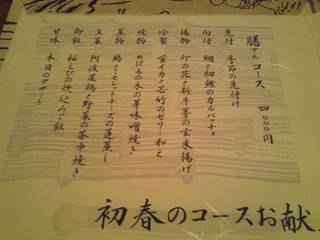 膳てんコース 四〇〇〇円
先付 季節の先付け
向付 鯛と初鰹のカルパッチョ
揚物 卯の花と新牛蒡の玄米揚げ
冷製 蛍イカと若竹のゼリー和え
焼物 めばるの木の芽味噌焼き
蒸物 鯵とミモレットチーズの蓮蒸し
主菜 阿波尾鶏と野菜の茶巾焼き
御飯 桜えびの炊込みご飯
甘味 本日のデザート
初春のコースお献